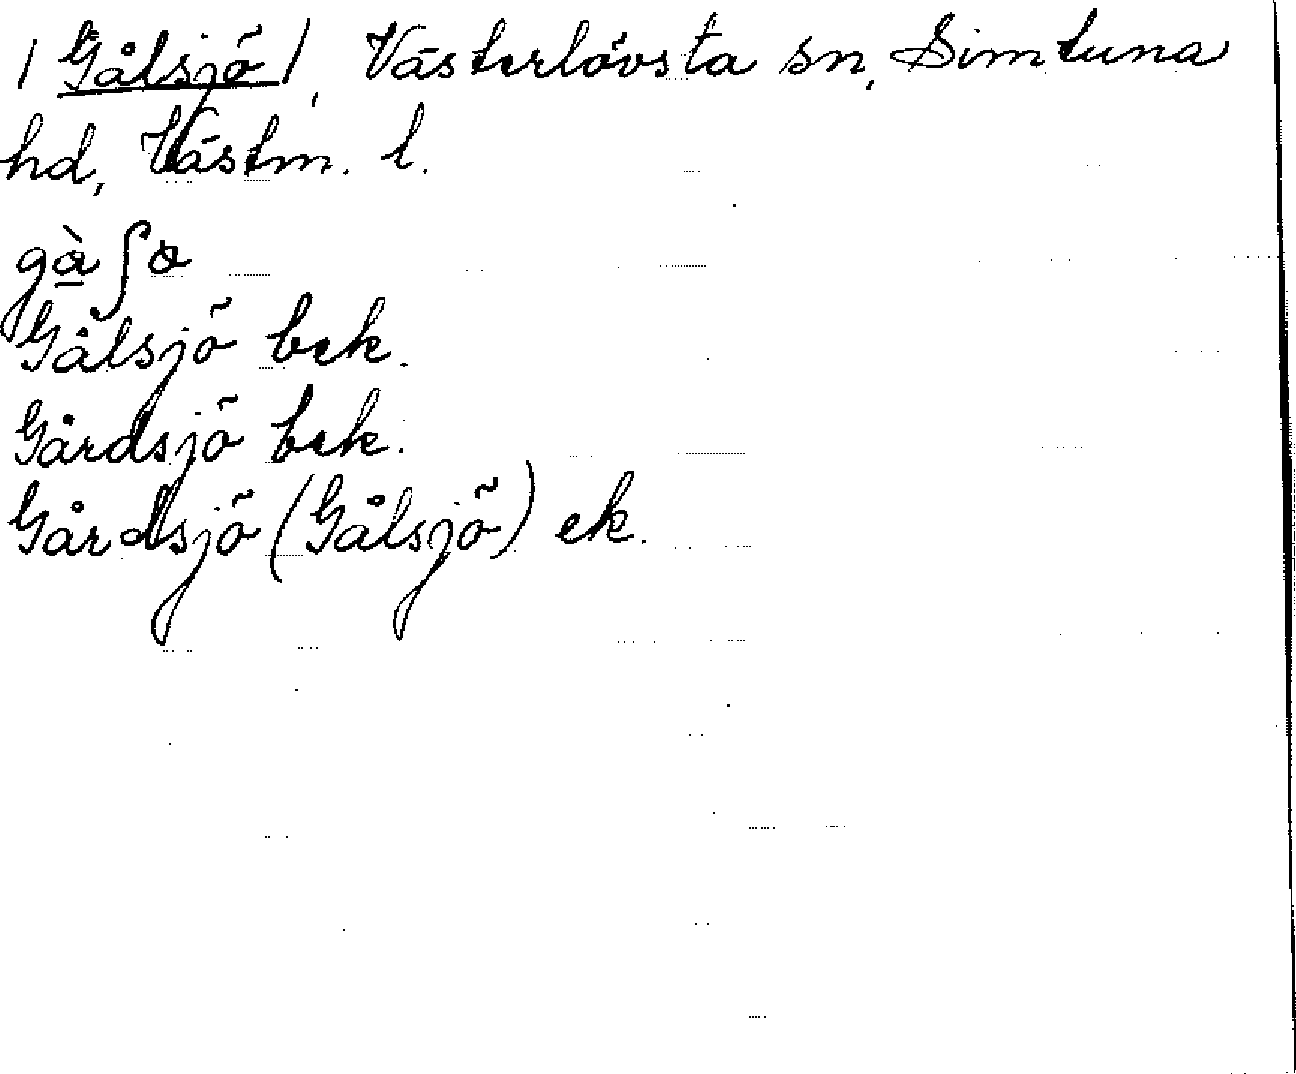 / Gålsjö /, Västerlövsta sn, Simtuna
hd, Västm. l.
gà̱ʃo
Gålsjö bek.
Gårdsjö bek.
Gårdsjö (Gålsjö) ek.